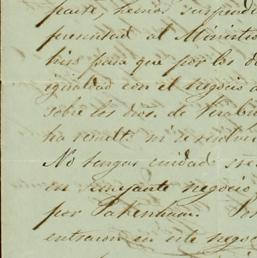 parte, hemos suspendi
presentad al Ministro
hiso para que por los d
igualdad con el negocio d
sobre los dros. de
ha result. ni se resolver
No tengas cuidado
en semejante negocio
por Pakenham.
entraron en este negoc